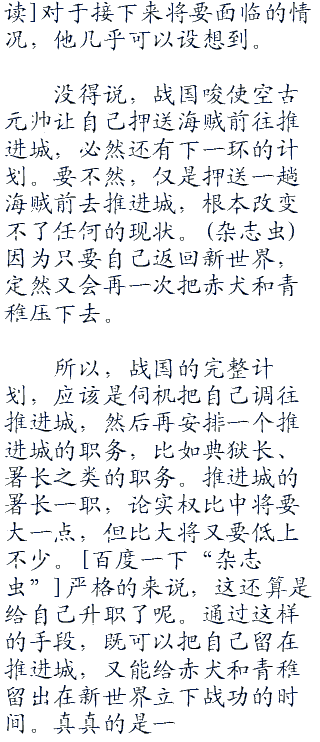 读]对于接下来将要面临的情
况，他几乎可以设想到。
没得说，战国唆使空古
元帅让自己押送海贼前往推
进城，必然还有下一环的计
划。要不然，仅是押送一趟
海贼前去推进城，根本改变
不了任何的现状。(杂志虫)
因为只要自己返回新世界，
定然又会再一次把赤犬和青
稚压下去。
所以，战国的完整计
划，应该是伺机把自己调往
推进城，然后再安排一个推
进城的职务，比如典狱长、
署长之类的职务。推进城的
署长一职，论实权比中将要
大一点，但比大将又要低上
不少。[百度一下“杂志
虫”]严格的来说，这还算是
给自己升职了呢。通过这样
的手段，既可以把自己留在
推进城，又能给赤犬和青稚
留出在新世界立下战功的时
间。真真的是一